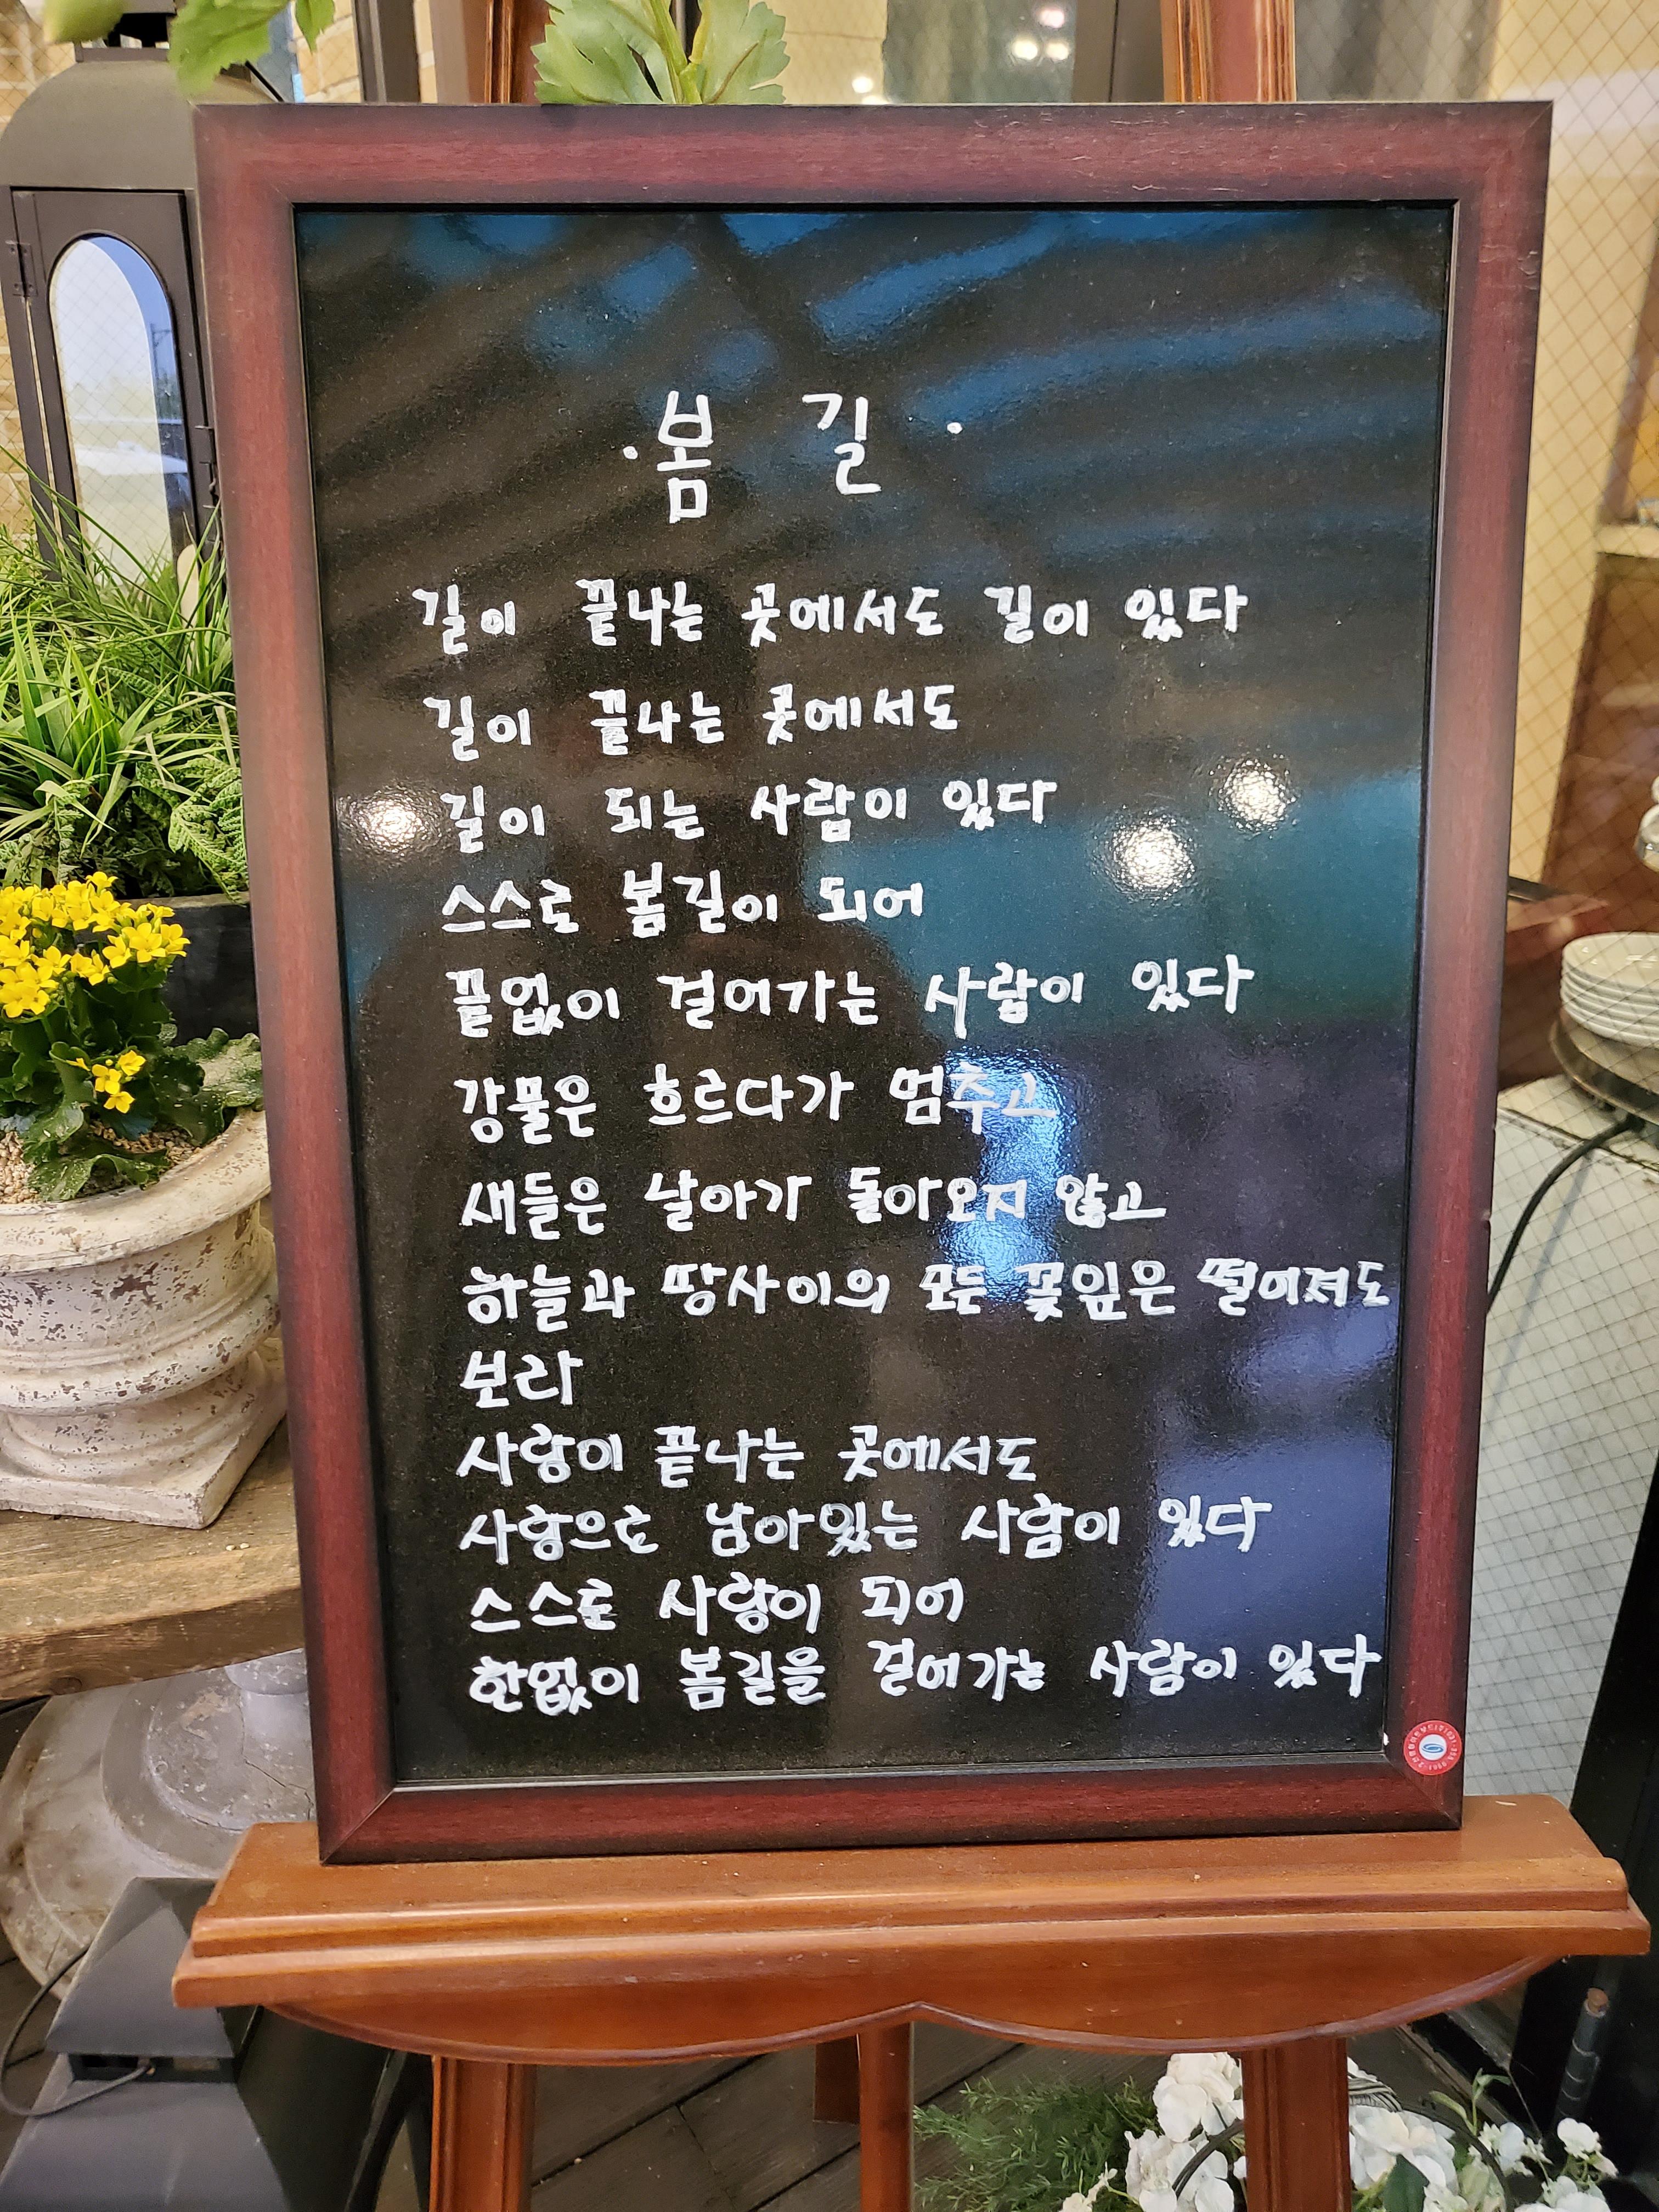 · 봄 길 ·
길이 끝나는 곳에서도 길이 있다
길이 끝나는 곳에서도
길이 되는 사람이 있다
스스로 봄길이 되어
끝없이 걸어가는 사람이 있다
강물은 흐르다가 멈추고
새들은 날아가 돌아오지 않고
하늘과 땅사이의 모든 꽃잎은 떨어져도
보라
사랑이 끝나는 곳에서도
사랑으로 남아있는 사람이 있다
스스로 사랑이 되어
한없이 봄길을 걸어가는 사람이 있다